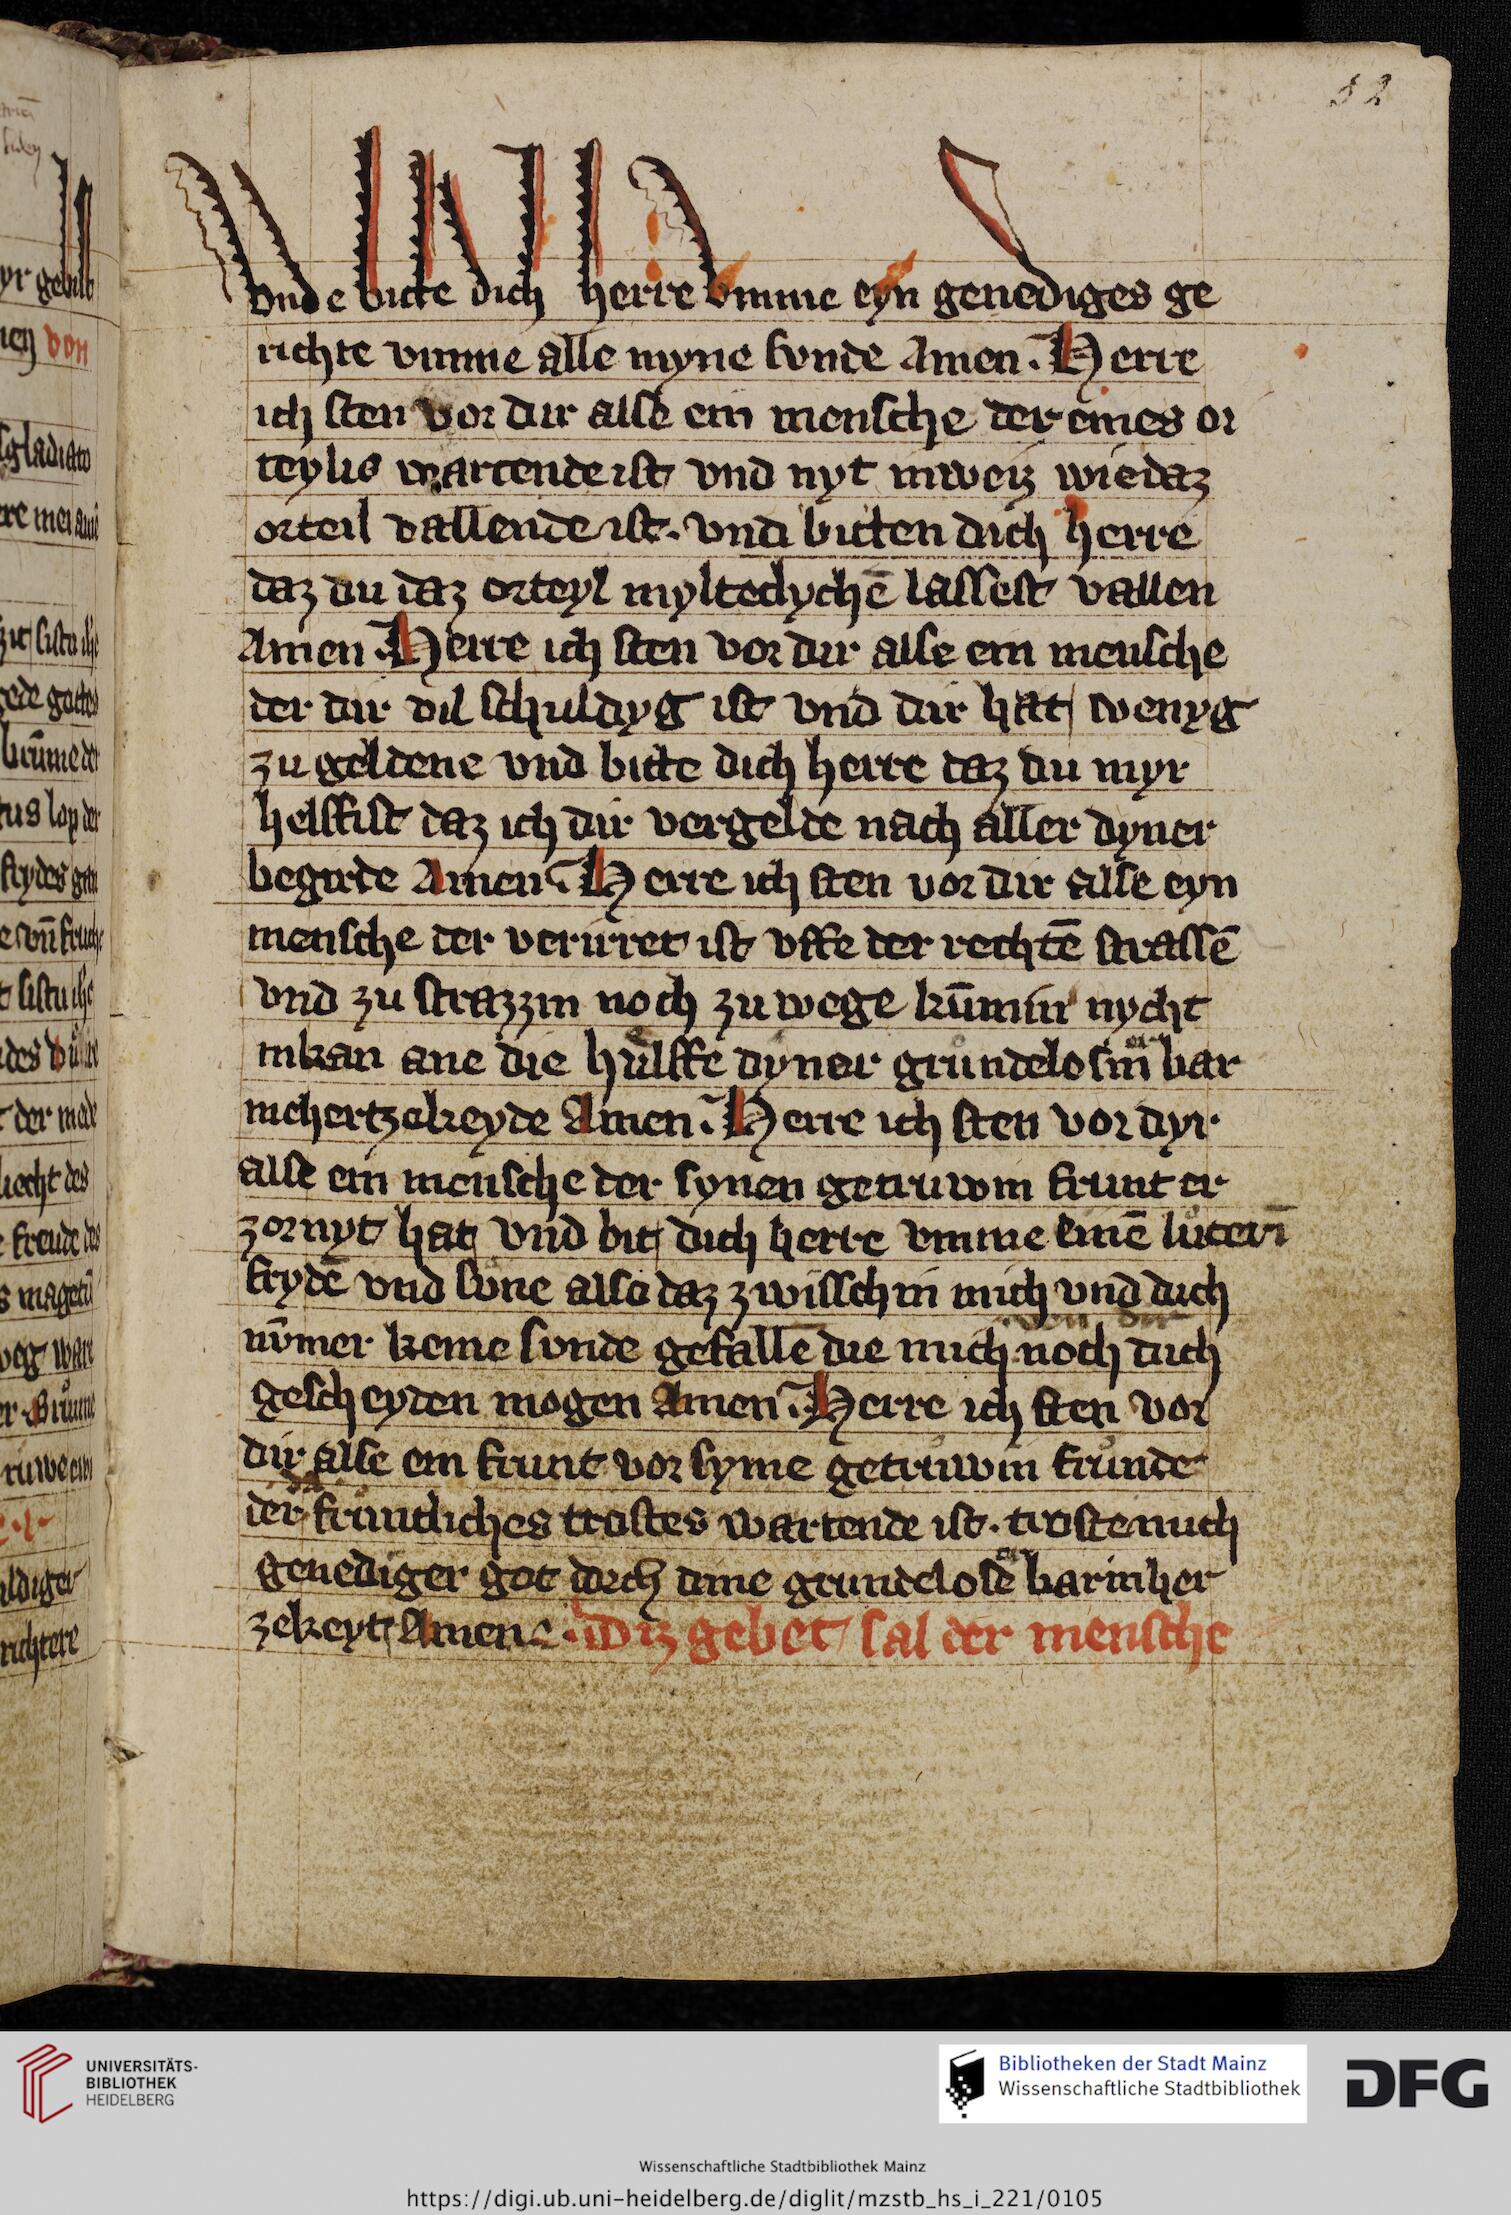 52
vnde bitte dich herre vmme eyn genediges ge
richte vmme alle myne sunde Amen. Herre
ich sten vor dir alse ein mensche der eines or
teylis wartende ist vnd nyt inweiz wie daz
orteil vallende ist. vnd bitten dich herre
daz du daz orteyl myltedychē lassest vallen
Amen. Herre ich sten vor dir alse ein mensche
der dir vil schuldyg ist vnd dir hat wenyg
zu geldene vnd bitte dich herre daz du myr
helffist daz ich dir vergelde nach aller dyner
begirde Amen. Herre ich sten vor dir alse eyn
mensche der verirret ist vffe der rechtē strassē
vnd zu strazzin noch zu wege kūmin nycht
inkan ane die hulffe dyner grundelosin bar
mehertzekeyde Amen. Herre ich sten vor dyr
alse ein mensche der synen getruwin frunt er
zornyt hat vnd bit dich herre vmme einē luterī
frydē vnd sone also daz zwisschin mich vnd dich
nvmer keine sunde gefallē die mich noch dich
von dir
gescheyden mogen Amen. Herre ich sten vor
dir alse ein frunt vor syme getruwin frunde
der fruntliches trostes wartende ist. troste mich
genediger got dorch dine grundelose barmher
zekeyt Amen. Diz gebet sal der mensche
yr gebut
von
gladiato
lop der
frydes
sistu ihc
liecht des
freude des
richtere
UNIVERSITÄTS-
BIBLIOTHEK
HEIDELBERG
Bibliotheken der Stadt Mainz
Wissenschaftliche Stadtbibliothek
DFG
Wissenschaftliche Stadtbibliothek Mainz
https://digi.ub.uni-heidelberg.de/diglit/mzstb_hs_i_221/0105